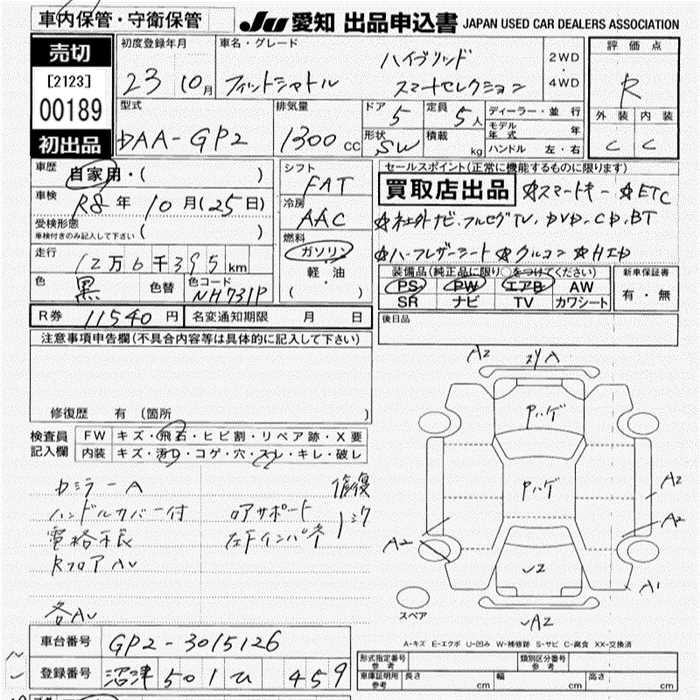 車内保管・守衛保管
JU 愛知 出品申込書 JAPAN USED CAR DEALERS ASSOCIATION
売切
[2123]
00189
初出品
初度登録年月
23 10月
車名・グレード
ハイブリッド
フィットシャトル スマートセレクション
2WD
・
4WD
評価点
R
外装 内装
C C
型式
DAA-GP2
排気量
1300 cc
ドア
5
定員
5人
形状
SW
積載
kg
ディーラー・並行
モデル年式 年
ハンドル 左・右
車歴
自家用・( )
車検
R8年 10月(25日)
受検形態
車検付きのみ記入して下さい ( )
走行
12万6千395km
色
黒
色替
色コード
NH731P
シフト
FAT
冷房
AAC
燃料
ガソリン
軽・油
( )
セールスポイント(正常に機能するものに限ります)
買取店出品 ☆スマートキー ☆ETC
☆社外ナビ・フルセグTV, DVD, CD, BT
☆ハーフレザーシート ☆クルコン ☆HID
装備品(純正品に限り○をつけてください)
PS PW エアB AW
SR ナビ TV カワシート
新車保証書
有・無
R券 11540円
名変通知期限 月 日
後日品
注意事項申告欄(不具合内容等は具体的に記入して下さい)
修復歴 有 (箇所 )
検査員記入欄
FW キズ・飛石・ヒビ割・リペア跡・X要
内装 キズ・汚れ・コゲ・穴・スレ・キレ・破レ
カミラーA 修復
ハンドルカバー付 コアサポート
電格不良 左Fインパネ
RフロアAU
各AU
A2
A
Pハゲ
Pハゲ
A2
A2
A2
A1
√2
√A2
スペア
A-キズ E-エクボ U-凹み W-補修跡 S-サビ C-腐食 XX-交換済
車台番号 GP2-3015126
登録番号 沼津 501 ひ 459
形式指定番号
参考
類別区分番号
参考
車庫証明用
参考
長さ cm 幅 cm 高さ cm